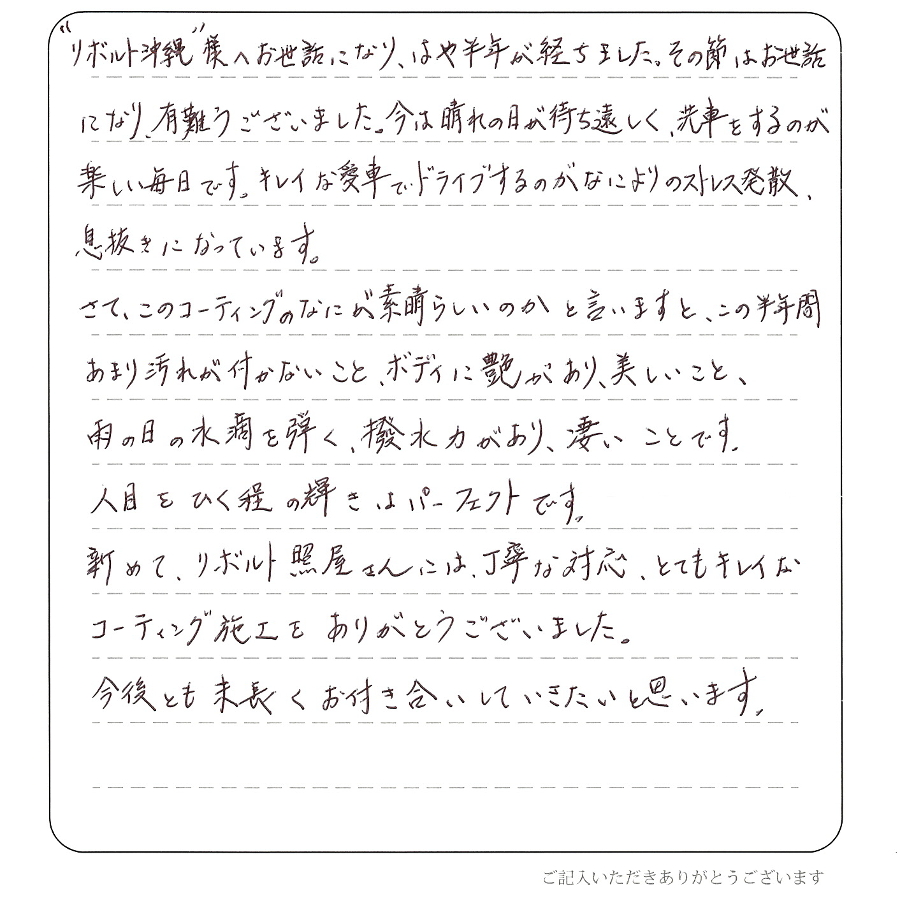 "リボルト沖縄"様へお世話になり、はや半年が経ちました。その節はお世話
になり、有難うございました。今は晴れの日が待ち遠しく、洗車をするのが
楽しい毎日です。キレイな愛車でドライブするのがなによりのストレス発散、
息抜きになっています。
さて、このコーティングのなにが素晴らしいのかと言いますと、この半年間
あまり汚れが付かないこと、ボディに艶があり、美しいこと、
雨の日の水滴を弾く、撥水力があり、凄いことです。
人目をひく程の輝きはパーフェクトです。
新めて、リボルト照屋さんには、丁寧な対応、とてもキレイな
コーティング施工をありがとうございました。
今後とも末長くお付き合いしていきたいと思います。
ご記入いただきありがとうございます